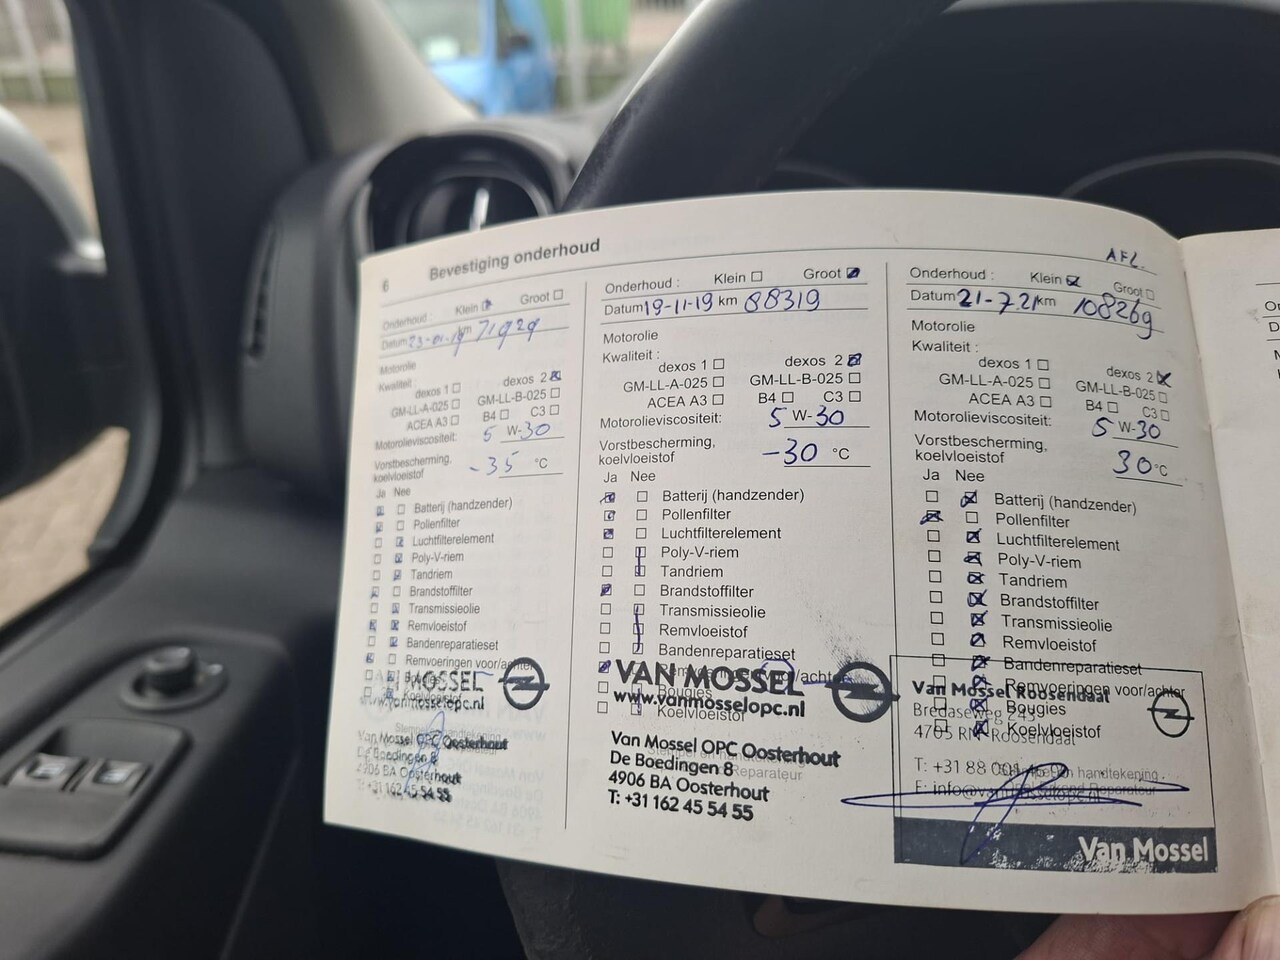 6
Bevestiging onderhoud
Onderhoud : Klein Groot
Datum 23-01-19 km 71929
Motorolie
Kwaliteit :
dexos 1 dexos 2
GM-LL-A-025 GM-LL-B-025
ACEA A3 B4 C3
Motorolieviscositeit: 5 W-30
Vorstbescherming,
koelvloeistof -35 °C
Ja Nee
Batterij (handzender)
Pollenfilter
Luchtfilterelement
Poly-V-riem
Tandriem
Brandstoffilter
Transmissieolie
Remvloeistof
Bandenreparatieset
Remvoeringen voor/achter
MOSSEL
www.vanmosselopc.nl
Van Mossel OPC Oosterhout
De Boedingen 8
4906 BA Oosterhout
T: +31 162 45 54 55
Onderhoud : Klein Groot
Datum 19-11-19 km 88319
Motorolie
Kwaliteit :
dexos 1 dexos 2
GM-LL-A-025 GM-LL-B-025
ACEA A3 B4 C3
Motorolieviscositeit: 5 W-30
Vorstbescherming,
koelvloeistof -30 °C
Ja Nee
Batterij (handzender)
Pollenfilter
Luchtfilterelement
Poly-V-riem
Tandriem
Brandstoffilter
Transmissieolie
Remvloeistof
Bandenreparatieset
Remvoeringen voor/achter
VAN MOSSEL
Bougies
www.vanmosselopc.nl
Koelvloeistof
Van Mossel OPC Oosterhout
De Boedingen 8
Reparateur
4906 BA Oosterhout
T: +31 162 45 54 55
AFL.
Onderhoud : Klein Groot
Datum 21-7-21 km 108269
Motorolie
Kwaliteit :
dexos 1 dexos 2
GM-LL-A-025 GM-LL-B-025
ACEA A3 B4 C3
Motorolieviscositeit: 5 W-30
Vorstbescherming,
koelvloeistof 30 °C
Ja Nee
Batterij (handzender)
Pollenfilter
Luchtfilterelement
Poly-V-riem
Tandriem
Brandstoffilter
Transmissieolie
Remvloeistof
Bandenreparatieset
Remvoeringen voor/achter
Van Mossel Roosendaal
Bougies
Bredaseweg 243
Koelvloeistof
4705 RN Roosendaal
T: +31 88
handtekening
Reparateur
Van Mossel